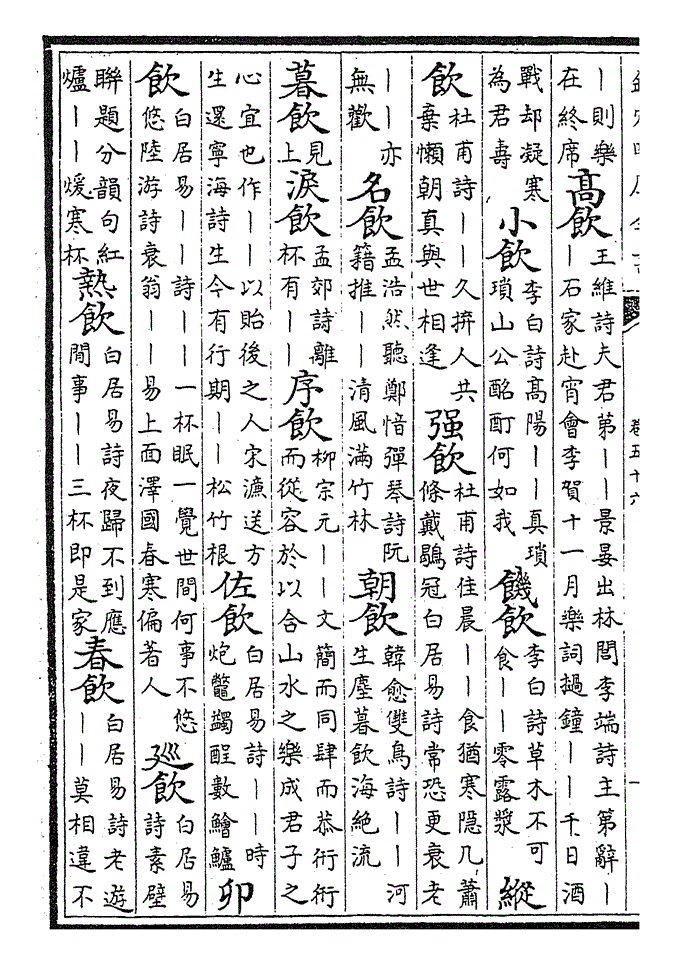 欽定四庫全書 卷五十六 一
｜則樂在終席 高飲 王維詩夫君第｜｜景晏出林閭李端詩主第辭｜｜石家赴宵會李賀十一月樂詞撾鐘｜｜千日酒
戰却凝寒為君壽 小飲 李白詩高陽｜｜真瑣瑣山公酩酊何如我 饑飲 李白詩草木不可食｜｜零露漿 縱
飲 杜甫詩｜｜久拚人共棄懶朝真與世相逢 强飲 杜甫詩佳晨｜｜食猶寒隐几蕭條戴鶡冠白居易詩常恐更衰老
｜｜亦無歡 名飲 孟浩然聽鄭愔彈琴詩阮籍推｜｜清風滿竹林 朝飲 韓愈雙鳥詩｜｜河生塵暮飲海絶流
暮飲 見上 淚飲 孟郊詩離杯有｜｜ 序飲 柳宗元｜｜文簡而同肆而恭衎衎而從容於以合山水之樂成君子之
心宜也作｜｜以貽後之人宋濂送方生還寧海詩生今有行期｜｜松竹根 佐飲 白居易詩｜｜時炮鼈蠲酲數鱠鱸 卯
飲 白居易｜｜詩｜｜一杯眠一覺世間何事不悠悠陸游詩衰翁｜｜易上面澤國春寒偏著人 廵飲 白居易詩素壁
聯題分韻句紅爐｜｜煖寒杯 熱飲 白居易詩夜歸不到應閒事｜｜三杯即是家 春飲 白居易詩老遊｜｜莫相違不